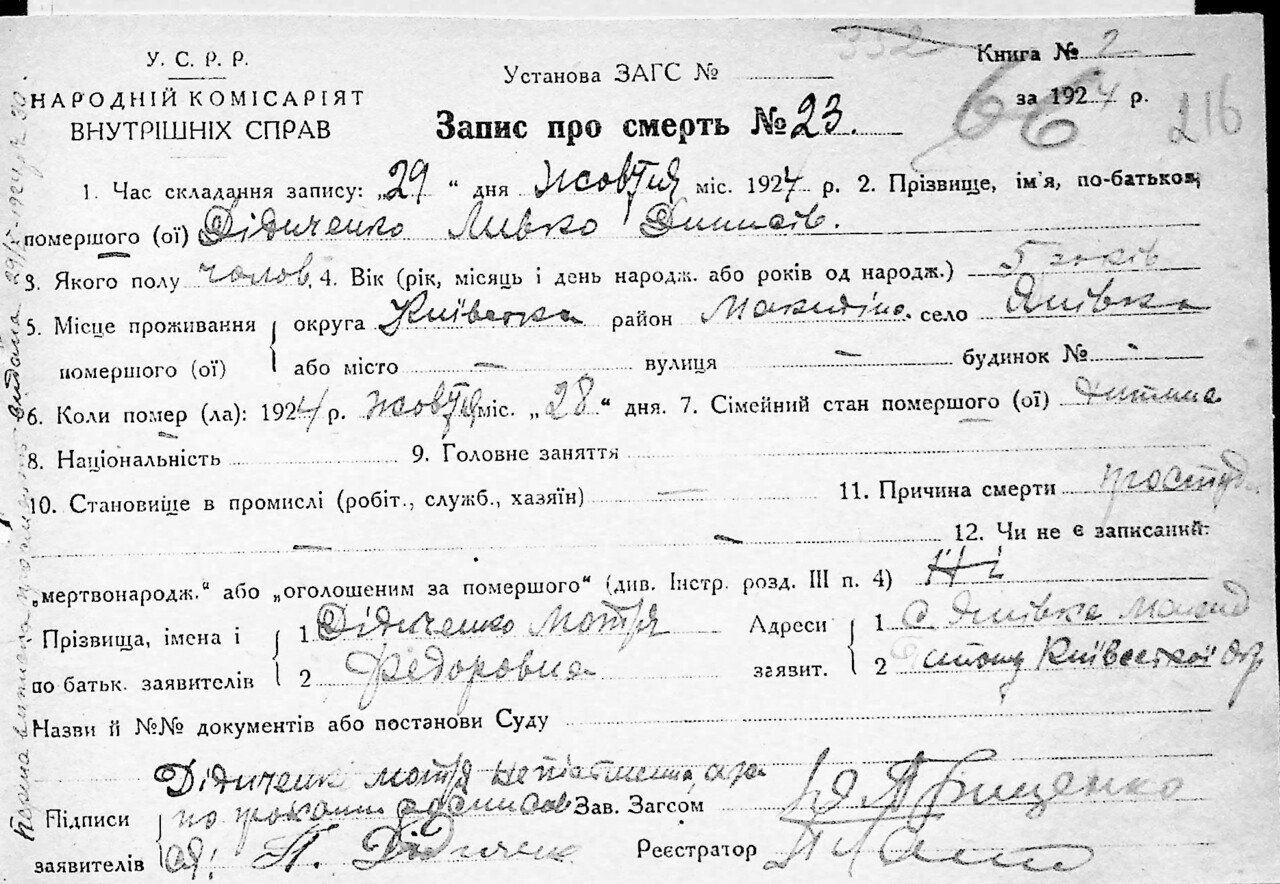 332
У. С. Р. Р.
НАРОДНІЙ КОМІСАРІЯТ
ВНУТРІШНІХ СПРАВ
Установа ЗАГС №
Книга № 2
за 1924 р.
66
216
Запис про смерть № 23.
1. Час складання запису: „29“ дня жовтня міс. 1924 р. 2. Прізвище, ім'я, по-батькові,
помершого (ої) Дідиченко Левко
3. Якого полу чолов. 4. Вік (рік, місяць і день народж. або років од народж.) 5 років
5. Місце проживання помершого (ої) { округа Київська район село Янівка
або місто — вулиця — будинок № -
6. Коли помер (ла): 1924 р. жовтня міс. „28“ дня. 7. Сімейний стан помершого (ої) дитина
8. Національність 9. Головне заняття
10. Становище в промислі (робіт., служб., хазяїн) — 11. Причина смерти простуд
— — 12. Чи не є записаний:
„мертвонародж.“ або „оголошеним за помершого“ (див. Інстр. розд. III п. 4) Ні
Прізвища, імена і по батьк. заявителів { 1 Дідиченко Мотря Адреси заявит. { 1 с. Янівка
2 Федоровна 2 Київської окр
Назви й №№ документів або постанови Суду
Дідиченко Мотря неписьменна а за
Підписи заявителів { по Зав. Загсом
П. Дідиченк Реєстратор